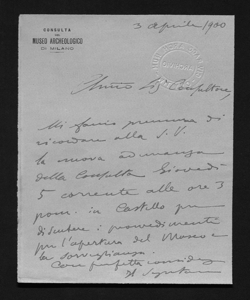 CONSULTA
DEL
MUSEO ARCHEOLOGICO
DI MILANO
3 Aprile / 900
Consultore,
Mi faccio premura di
ricordare alla S. V.
la nuova adunanza
della Consulta Giovedì
5 corrente alle ore 3
pom. in Castello per
discutere i provvedimenti
per l'apertura del Museo e
la sorveglianza.
Con perfetta